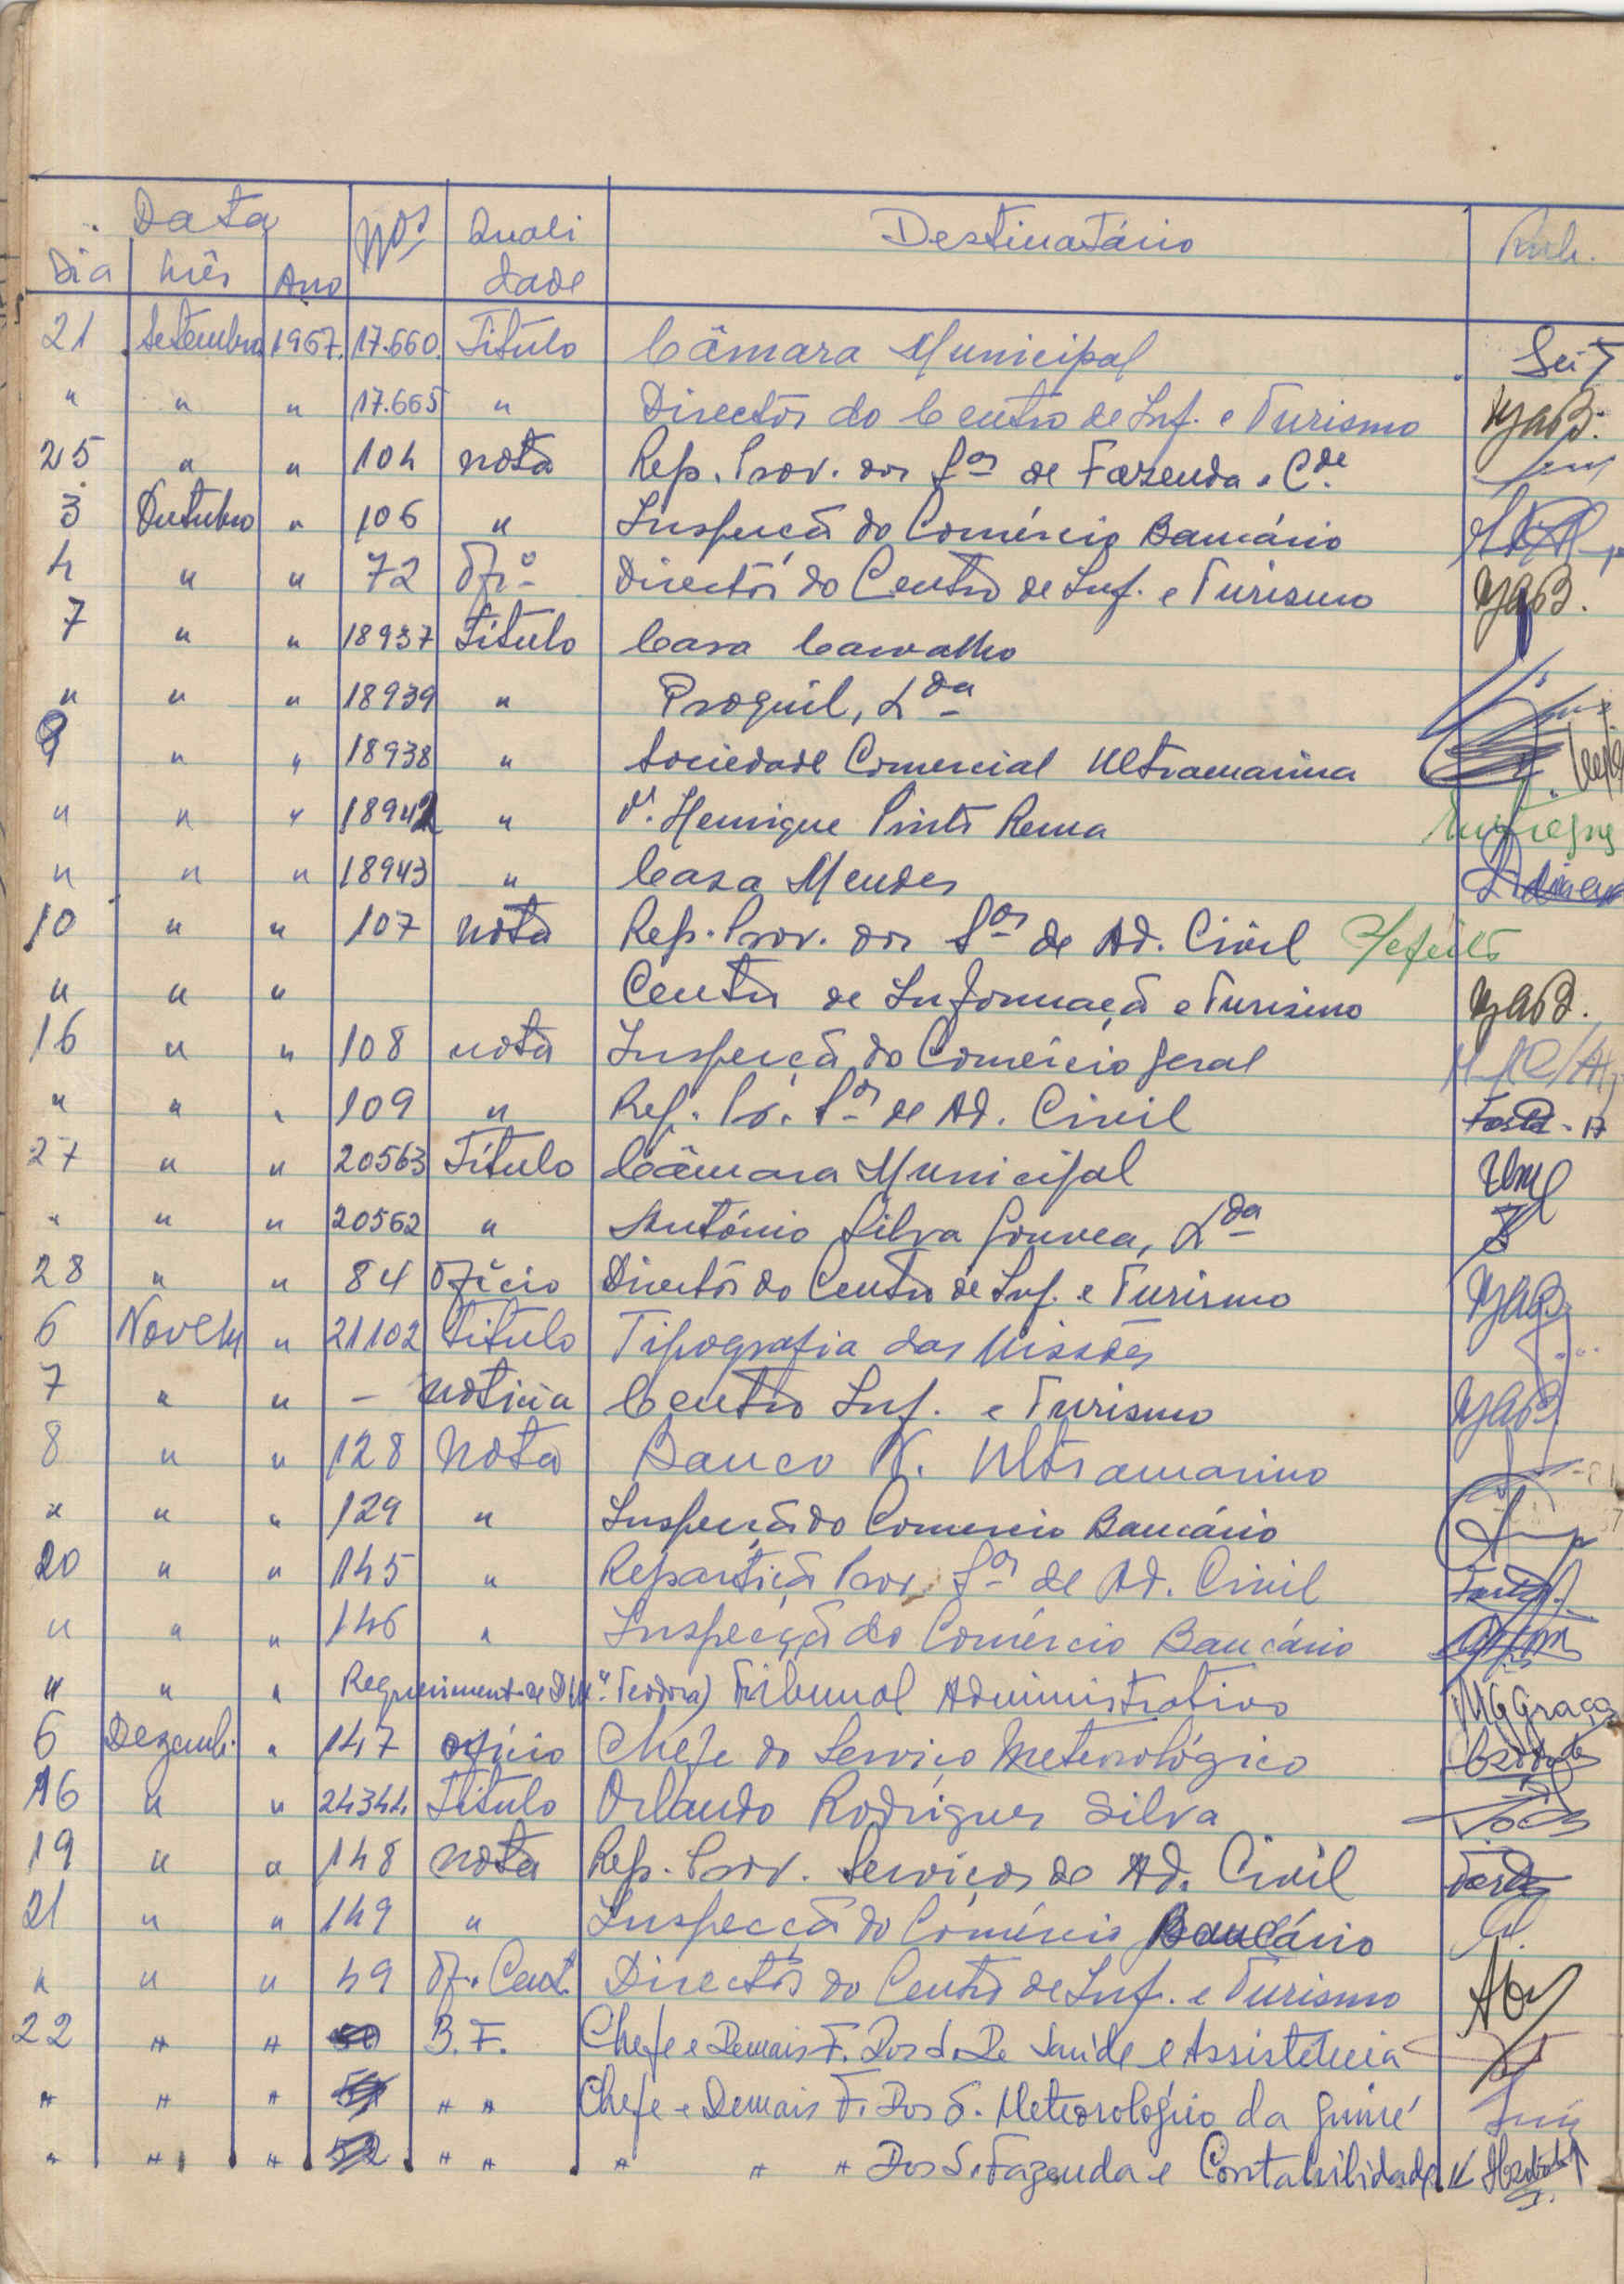 Data Nos Quali Destinatário Rub.
Dia Mês Ano dade
21 Setembro 1967 17.660 Título Câmara Municipal
" " " 17.665 " Directôr do Centro de Inf. e Turismo
25 " " 104 nota Rep. Prov. dos Sos de Fazenda e Cde
3 Outubro " 106 " Inspecçã do Comércio Bancário
4 " " 72 Ofº Directôr do Centro de Inf. e Turismo
7 " " 18937 Título Casa Carvalho
" " " 18939 " Proquil, Lda
9 " " 18938 " Sociedade Comercial Ultramarina
" " " 18942 " Henrique Pinto Rema
" " " 18943 " Casa Mendes
10 " " 107 nota Rep. Prov. dos Sos de Ad. Civil
" " " Centro de Informaçã e Turismo
16 " " 108 nota Inspecçã do Comércio Geral
" " " 109 " Rep. Pr. Sos de Ad. Civil
27 " " 20563 Título Câmara Municipal
" " " 20562 " António Silva Gouvea, Lda
28 " " 84 Ofício Directôr do Centro de Inf. e Turismo
6 Novem " 21102 Título Tipografia das Missões
7 " " - noticia Centro Inf. e Turismo
8 " " 128 Nota Banco N. Ultramarino
" " " 129 " Inspecçã do Comercio Bancário
20 " " 145 " Repartiçã Prov. Sos de Ad. Civil
" " " 146 " Inspecçã do Comércio Bancário
" " " Requerimento de D. Mª Teodora) Tribunal Administrativo MGGraça
6 Dezemb. " 147 ofício Chefe do Serviço Meteorológico
16 " " 24344 Título Orlando Rodrigues Silva
19 " " 148 nota Rep. Prov. Serviços de Ad. Civil
21 " " 149 " Inspecçã do Comércio Bancário
" " " 49 Of. Cent. Directôr do Centro de Inf. e Turismo
22 " " 50 B.F. Chefe e Demais F. Dos S. De Saúde e Assistência
" " " 51 " " Chefe e Demais F. Dos S. Meteorológico da Guiné
" " " 52 " " " " " Dos S. Fazenda e Contabilidade